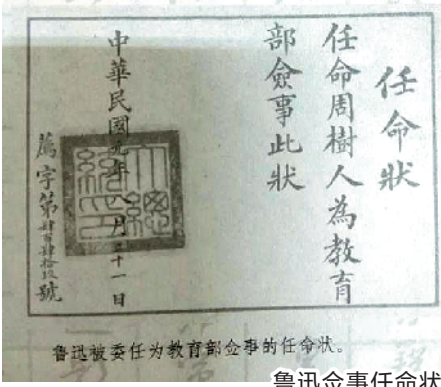 任命狀
任命周樹人為教育
部僉事此狀
中華民國元年八月二十一日
薦字第肆百肆拾玖號
鲁迅被委任为教育部佥事的任命状。
鲁迅佥事任命状